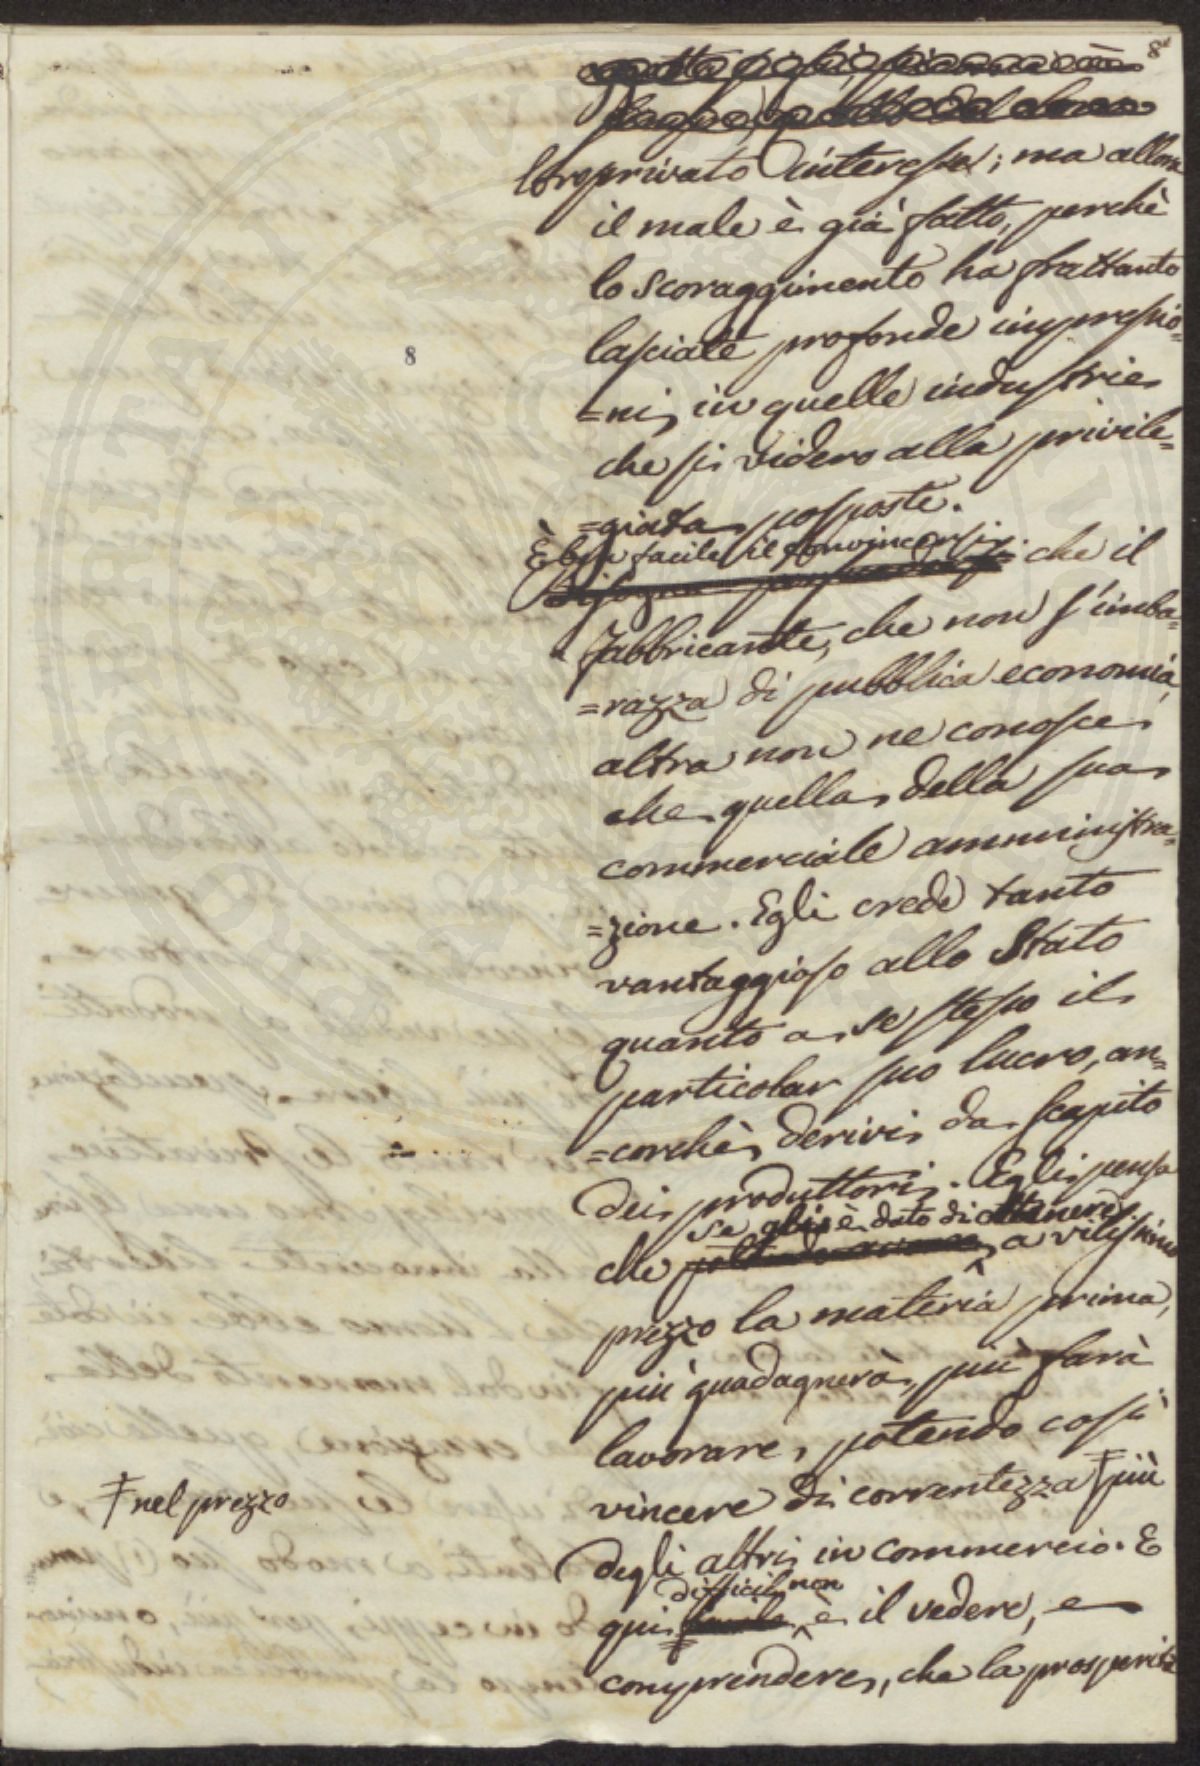 8
loro privato interesse; ma allora
il male è già fatto, perchè
lo scoraggimento ha frattanto
lasciate profonde impressio-
=ni, in quelle industrie
che si videro alla privile=
=giata posposte.
È ben facile il convincersi che il
fabbricante, che non s'imba=
=razza di pubblica economia,
altra non ne conosce
che quella della sua
commerciale amministra=
=zione. Egli crede tanto
vantaggioso allo Stato
quanto a se stesso il
particolar suo lucro, an=
=corchè derivi da scapito
dei produttori. Egli pensa
se gli è dato di ottenere
che a vilissimo
prezzo la materia prima,
più guadagnerà, più farà
lavorare, potendo così
vincere di correntezza ‡ più
‡ nel prezzo
degli altri in commercio. E
difficil non
qui è il vedere, e
comprendere, che la prosperità
8